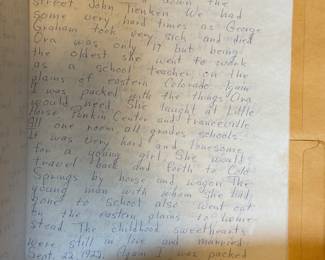 down the
street, John Tienken. We had
some very hard times as George
Graham took very sick and died
Ora was only 17 but being
the oldest she went to work
as a school teacher on the
plains of eastern Colorado. Again
I was packed with the things Ora
would need. She taught at Little
Horse, Punkin Center and Truckeeville
All one room all grades schools.
It was very hard and lonesome
for a young girl. She would
travel back and forth to Colo
Springs by horse and wagon. The
young man with whom she had
gone to school also went out
on the eastern plains to home-
stead. The childhood sweethearts
were still in love and married
Sept. 22, 1922. Again I was packed